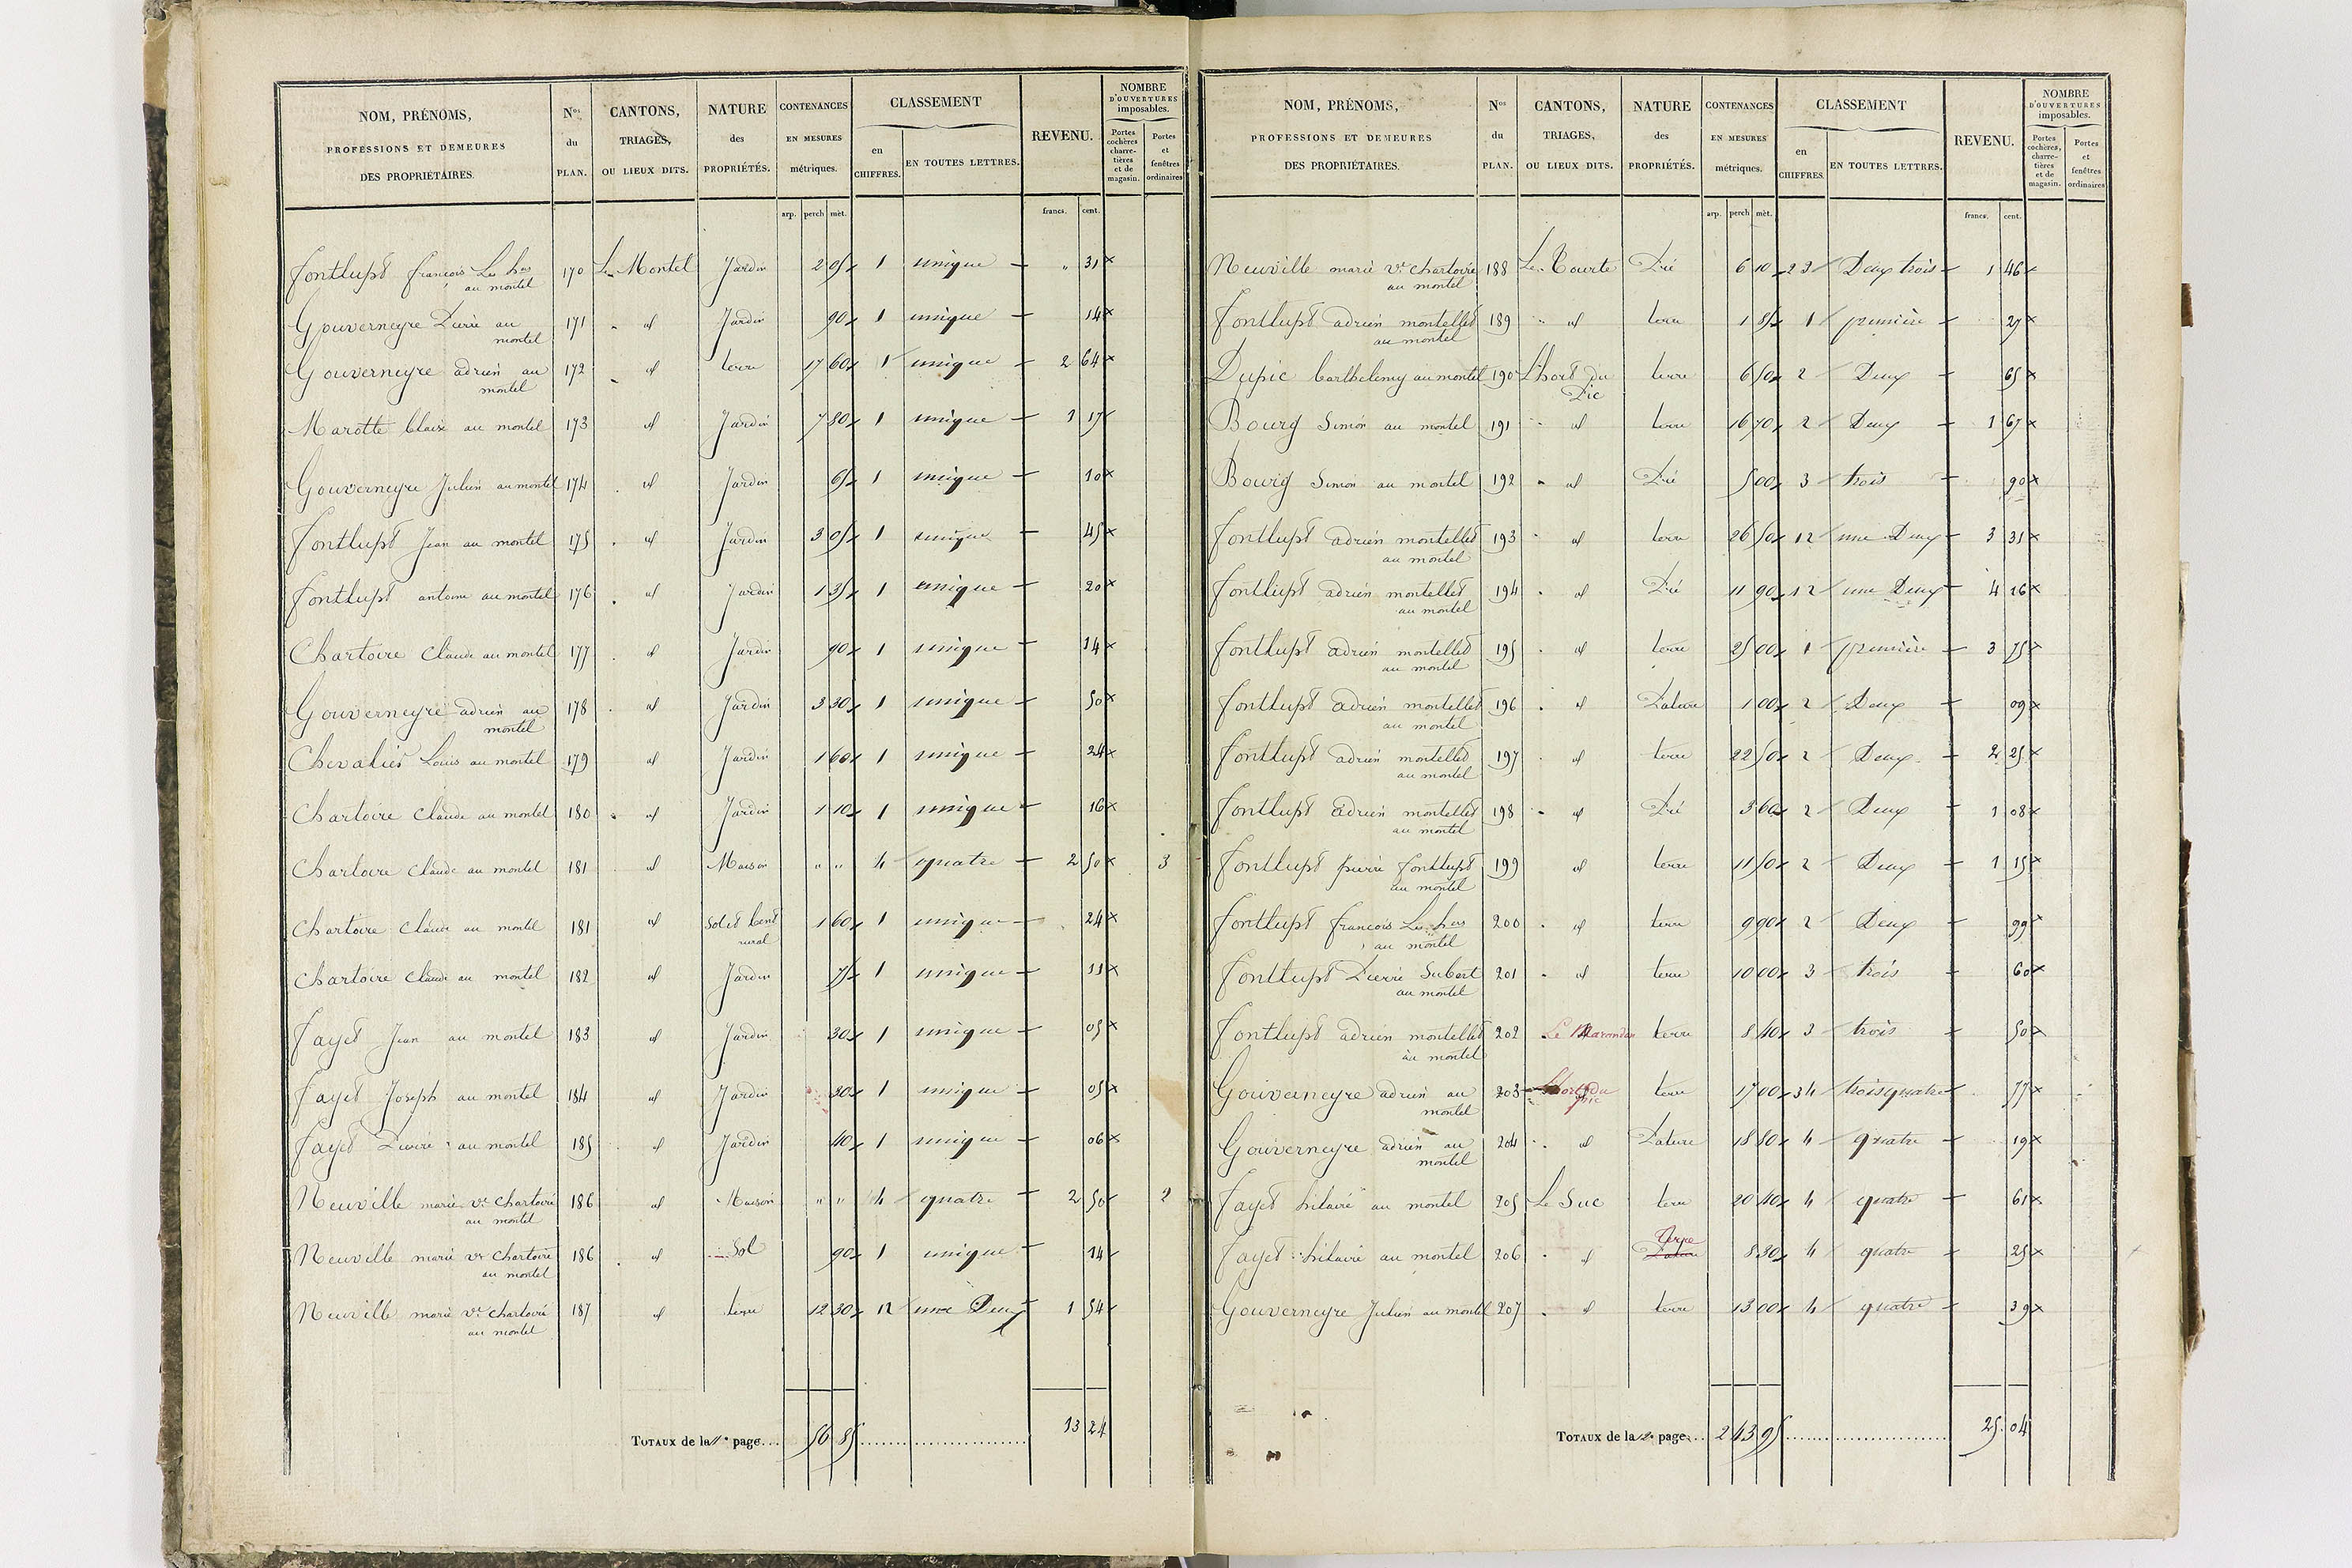 NOM, PRÉNOMS, PROFESSIONS ET DEMEURES DES PROPRIÉTAIRES. | Nos du PLAN. | CANTONS, TRIAGES, OU LIEUX DITS. | NATURE des PROPRIÉTÉS. | CONTENANCES EN MESURES métriques. | CLASSEMENT en CHIFFRES. EN TOUTES LETTRES. | REVENU. | NOMBRE D'OUVERTURES imposables. Portes cochères charretières et de magasin. Portes et fenêtres ordinaires
arp. perch mèt. francs. cent.
fontlupt françois Les hers au montel 170 Le Montel Jardin 2 05 1 unique " 31
Gouverneyre Pierre au montel 171 id Jardin 90 1 unique 14
Gouverneyre adrien au montel 172 id terre 17 60 1 unique 2 64
Marotte blaise au montel 173 id Jardin 7 80 1 unique 1 17
Gouverneyre Julien au montel 174 id Jardin 65 1 unique 10
fontlupt Jean au montel 175 id Jardin 3 05 1 unique 45
fontlupt antoine au montel 176 id Jardin 1 35 1 unique 20
Chartoire Claude au montel 177 id Jardin 90 1 unique 14
Gouverneyre adrien au montel 178 id Jardin 3 30 1 unique 50
Chevalier Louis au montel 179 id Jardin 1 60 1 unique 24
Chartoire Claude au montel 180 id Jardin 1 10 1 unique 16
Chartoire Claude au montel 181 id Maison " " 4 quatre 2 50 3
Chartoire Claude au montel 181 id Sol et bent rural 1 60 1 unique 24
Chartoire Claude au montel 182 id Jardin 75 1 unique 11
fayet Jean au montel 183 id Jardin 30 1 unique 05
fayet Joseph au montel 184 id Jardin 30 1 unique 05
fayet Pierre au montel 185 id Jardin 40 1 unique 06
Neuville marie ve Chartoire au montel 186 id Maison " " 4 quatre 2 50 2
Neuville marie ve Chartoire au montel 186 id Sol 90 1 unique 14
Neuville marie ve Chartoire au montel 187 id terre 12 30 12 une Deux 1 54
TOTAUX de la 1e page... 56 85 13 24
NOM, PRÉNOMS, PROFESSIONS ET DEMEURES DES PROPRIÉTAIRES. | Nos du PLAN. | CANTONS, TRIAGES, OU LIEUX DITS. | NATURE des PROPRIÉTÉS. | CONTENANCES EN MESURES métriques. | CLASSEMENT en CHIFFRES. EN TOUTES LETTRES. | REVENU. | NOMBRE D'OUVERTURES imposables. Portes cochères, charretières et de magasin. Portes et fenêtres ordinaires
arp. perch mèt. francs. cent.
Neuville marie ve Chartoire au montel 188 Le Courte Pré 6 10 23 Deux trois 1 46
fontlupt adrien montellet au montel 189 id terre 1 85 1 première 27
Dupic barthelemy au montel 190 L'hort du Pic terre 6 50 2 Deux 65
Bourg Simon au montel 191 id terre 16 70 2 Deux 1 67
Bourg Simon au montel 192 id Pré 5 00 3 trois 90
fontlupt adrien montellet au montel 193 id terre 26 50 12 une Deux 3 31
fontlupt adrien montellet au montel 194 id Pré 11 90 12 une Deux 4 16
fontlupt adrien montellet au montel 195 id terre 25 00 1 première 3 75
fontlupt adrien montellet au montel 196 id Pature 1 00 2 Deux 09
fontlupt adrien montellet au montel 197 id terre 22 50 2 Deux 2 25
fontlupt adrien montellet au montel 198 id Pré 3 60 2 Deux 1 08
fontlupt pierre fontlupt au montel 199 id terre 11 50 2 Deux 1 15
fontlupt françois Les hers au montel 200 id terre 9 90 2 Deux 99
fontlupt Pierre Subert au montel 201 id terre 10 00 3 trois 60
fontlupt adrien montellet au montel 202 Le Marondas terre 8 40 3 trois 50
Gouverneyre adrien au montel 203 L'hort du pic terre 17 00 34 trois quatre 77
Gouverneyre adrien au montel 204 id Pature 18 80 4 quatre 19
fayet hilaire au montel 205 Le Suc terre 20 40 4 quatre 61
fayet hilaire au montel 206 id Pature terre 8 30 4 quatre 25
Gouverneyre Julien au montel 207 id terre 13 00 4 quatre 39
TOTAUX de la 2e page... 2 43 95 25 04